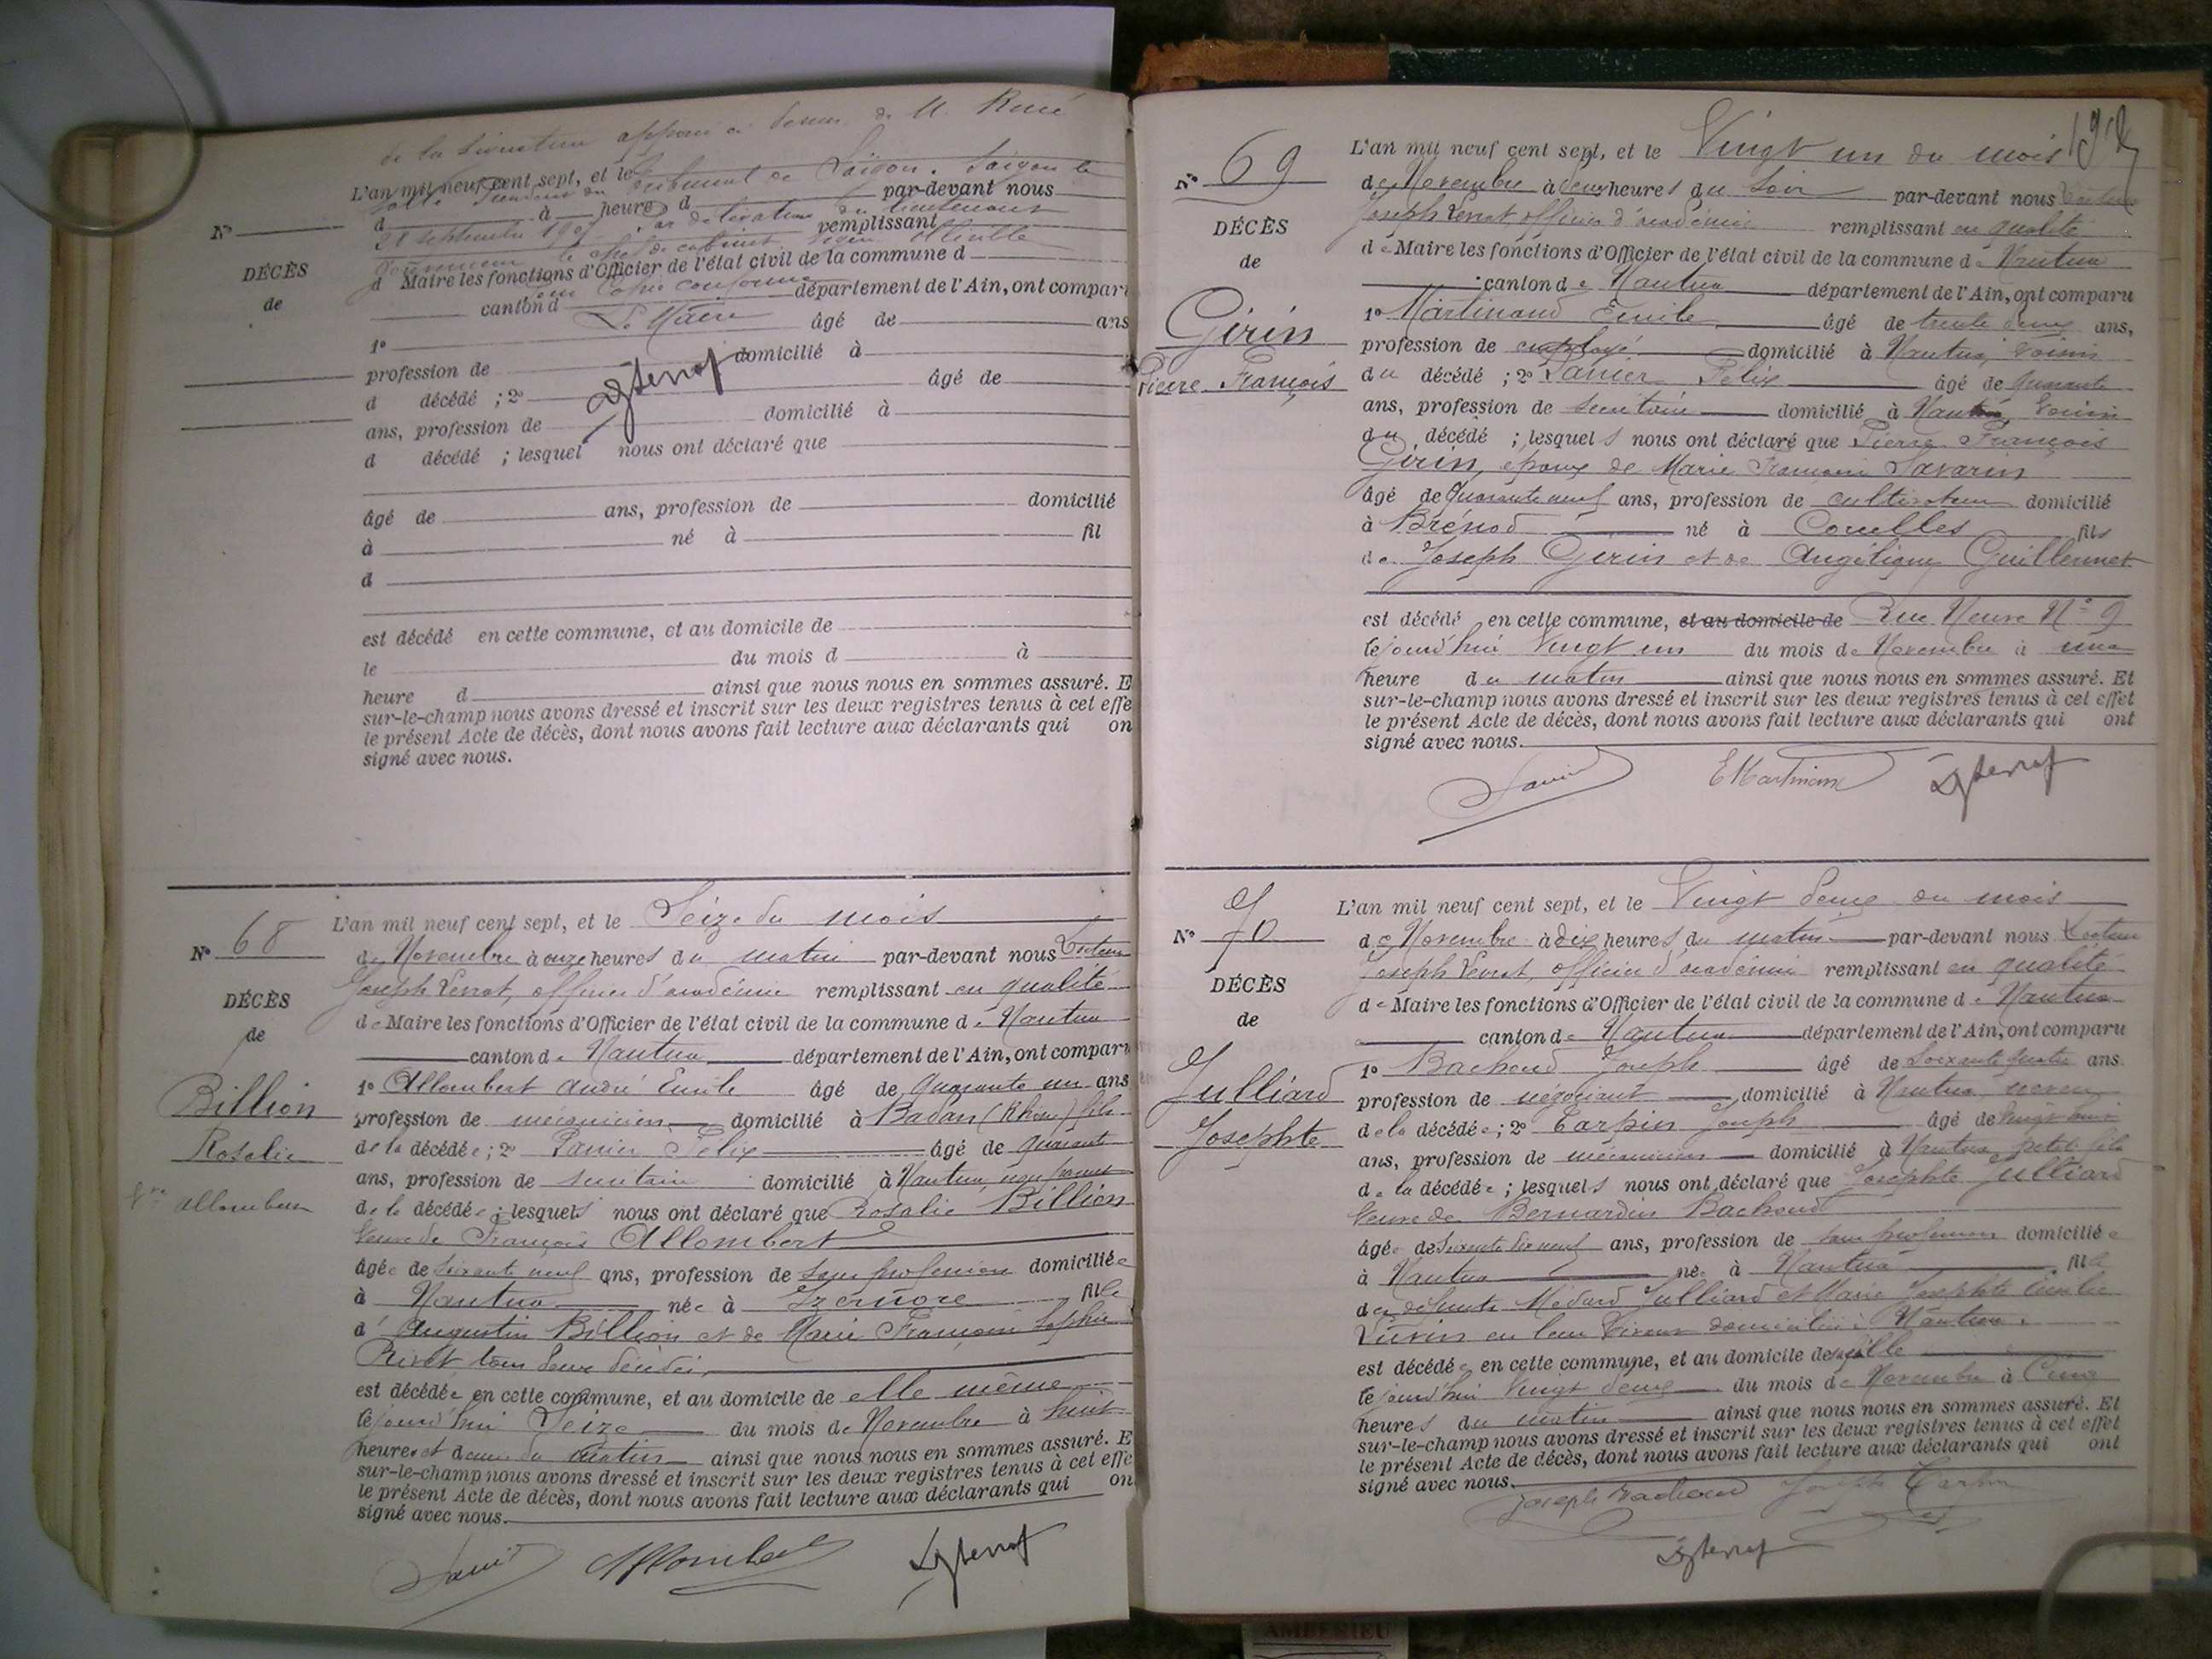 de la signature apposée ci dessus de M. René
L'an mil neuf cent sept, et le Tribunal de Saïgon. Saïgon le
d à heure d par-devant nous
28 septembre 1907 Par délégation du lieutenant remplissant
gouverneur le chef de cabinet
d Maire les fonctions d'Officier de l'état civil de la commune d
Pour Copie conforme
canton d département de l'Ain, ont compar
Le Maire
1º âgé de ans
profession de domicilié à
d décédé ; 2º âgé de
ans, profession de domicilié à
d décédé ; lesquel nous ont déclaré que
âgé de ans, profession de domicilié
à né à fil
d
est décédé en cette commune, et au domicile de
le du mois d à
heure d ainsi que nous nous en sommes assuré. E
sur-le-champ nous avons dressé et inscrit sur les deux registres tenus à cet effe
le présent Acte de décès, dont nous avons fait lecture aux déclarants qui on
signé avec nous.
Nº
DÉCÈS
de
Nº 68
DÉCÈS
de
Billion
Rosalie
Vve Allombert
L'an mil neuf cent sept, et le Seize du mois
de Novembre à onze heures du matin par-devant nous Docteur
Joseph Perrot, officier d'académie remplissant en qualité
de Maire les fonctions d'Officier de l'état civil de la commune de Nantua
canton de Nantua département de l'Ain, ont compar
1º Allombert André Emile âgé de quarante un ans
profession de mécanicien domicilié à Badan (Rhône) fils
de la décédée ; 2º Panier Félix âgé de quarante
ans, profession de secrétaire domicilié à Nantua, non parent
de la décédée ; lesquels nous ont déclaré que Rosalie Billion
Veuve de François Allombert
âgée de soixante neuf ans, profession de sans profession domiciliée
à Nantua née à Izernore fille
d' Augustin Billion et de Marie Françoise Sophie
Rivet tous deux décédés
est décédée en cette commune, et au domicile de elle même
le jourd'hui Seize du mois de Novembre à huit
heures et demie du matin ainsi que nous nous en sommes assuré. E
sur-le-champ nous avons dressé et inscrit sur les deux registres tenus à cet effe
le présent Acte de décès, dont nous avons fait lecture aux déclarants qui on
signé avec nous.
Allombert
Nº 69
DÉCÈS
de
Girin
Pierre François
L'an mil neuf cent sept, et le Vingt un du mois
de Novembre à deux heures du soir par-devant nous Docteur
Joseph Perrot, officier d'académie remplissant en qualité
de Maire les fonctions d'Officier de l'état civil de la commune de Nantua
canton de Nantua département de l'Ain, ont comparu
1º Martinand Emile âgé de trente deux ans,
profession de employé domicilié à Nantua, voisin
du décédé ; 2º Panier Félix âgé de quarante
ans, profession de secrétaire domicilié à Nantua, voisin
du décédé ; lesquels nous ont déclaré que Pierre François
Girin, époux de Marie Françoise Savarin
âgé de Quarante neuf ans, profession de cultivateur domicilié
à Brénod né à Corcelles fils
de Joseph Girin et de Angélique Guillermet
est décédé en cette commune, et au domicile de Rue Neuve Nº 9
le jourd'hui Vingt un du mois de Novembre à une
heure du matin ainsi que nous nous en sommes assuré. Et
sur-le-champ nous avons dressé et inscrit sur les deux registres tenus à cet effet
le présent Acte de décès, dont nous avons fait lecture aux déclarants qui ont
signé avec nous.
EMartinand
Nº 70
DÉCÈS
de
Julliard
Josephte
L'an mil neuf cent sept, et le Vingt deux du mois
de Novembre à dix heures du matin par-devant nous Docteur
Joseph Perrot, officier d'académie remplissant en qualité
de Maire les fonctions d'Officier de l'état civil de la commune de Nantua
canton de Nantua département de l'Ain, ont comparu
1º Bachoud Joseph âgé de soixante quatre ans.
profession de négociant domicilié à Nantua neveu
de la décédée ; 2º Carpin Joseph âgé de
ans, profession de mécanicien domicilié à Nantua, petit fils
de la décédée ; lesquels nous ont déclaré que Josephte Julliard
Veuve de Bernardin Bachoud
âgée de soixante dix neuf ans, profession de sans profession domiciliée
à Nantua née à Nantua fille
des défunts Médard Julliard et Marie Josephte
en leur vivant domiciliés à Nantua.
est décédée en cette commune, et au domicile de
le jourd'hui Vingt deux du mois de Novembre à Cinq
heures du matin ainsi que nous nous en sommes assuré. Et
sur-le-champ nous avons dressé et inscrit sur les deux registres tenus à cet effet
le présent Acte de décès, dont nous avons fait lecture aux déclarants qui ont
signé avec nous.
Joseph Bachoud Joseph Carpin
AMBERIEU